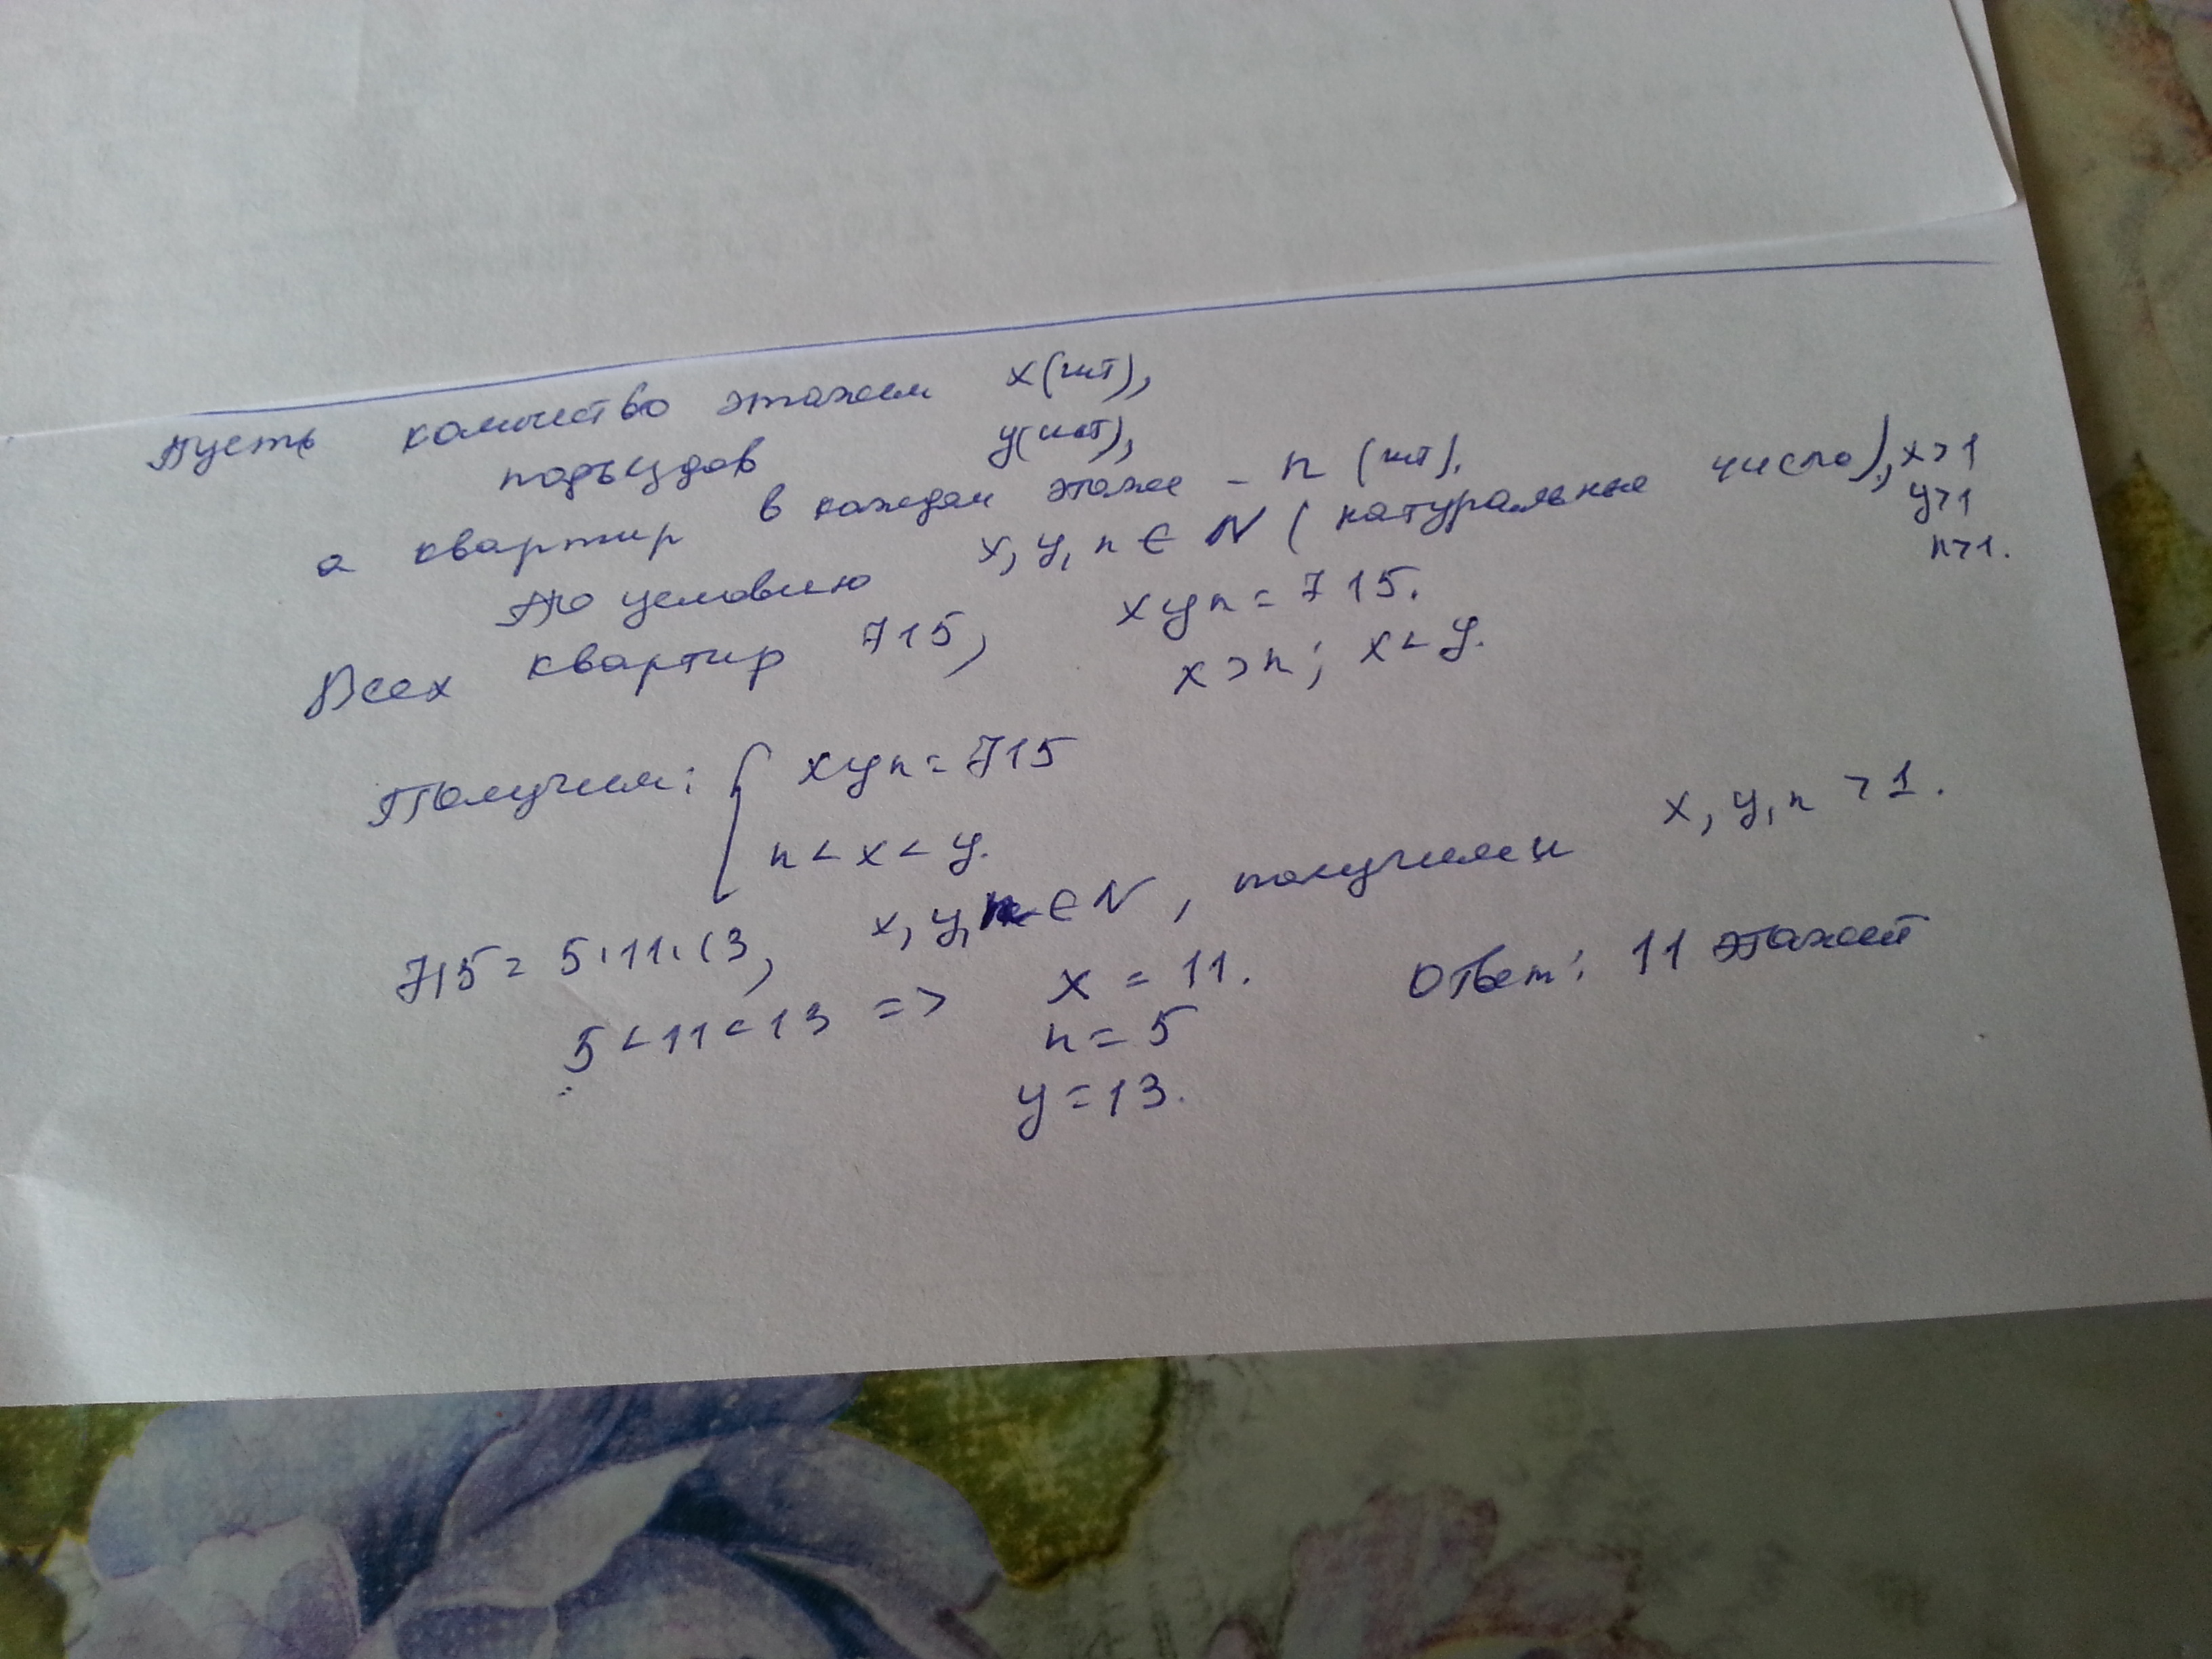 Пусть количество этажей x(шт),
подъездов y(шт),
а квартир в каждом этаже - n (шт).
По условию x, y, n ∈ N (натуральные число), x>1
y>1
n>1.
Всех квартир 715, xyn = 715.
x>n; x<y.
Получим: { xyn=715
n<x<y.
715= 5·11·13, x, y, n ∈ N, получим и x, y, n >1.
5<11<13 => x = 11. Ответ: 11 этажей
n=5
y=13.